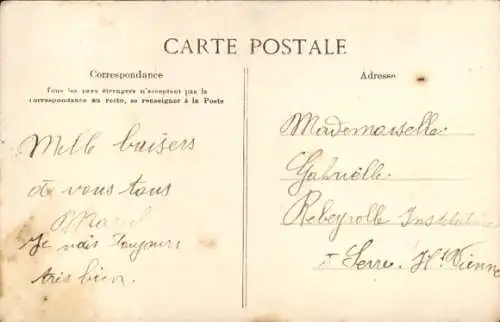 CARTE POSTALE
Correspondance
Tous les pays étrangers n'acceptent pas la
correspondance au recto, se renseigner à la Poste
Adresse
Mille baisers
de vous tous
Je vais toujours
très bien.
Mademoiselle
Gabrielle
Rebeyrolle Institutrice
Serre. Hte Vienne